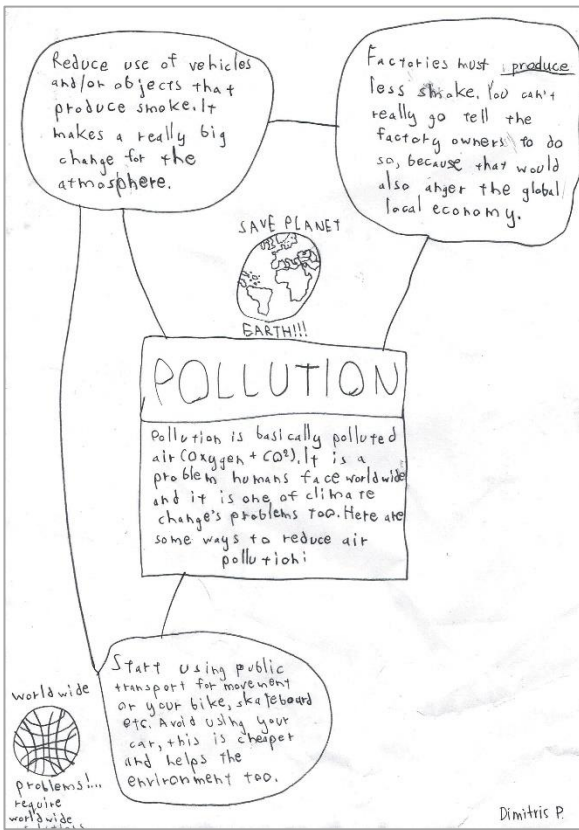 Reduce use of vehicles
and/or objects that
produce smoke. It
makes a really big
change for the
atmosphere.
Factories must produce
less smoke. You can't
really go tell the
factory owners to do
so, because that would
also anger the global
local economy.
SAVE PLANET
EARTH!!!
POLLUTION
Pollution is basically polluted
air (Oxygen + CO²). It is a
problem humans face worldwide
and it is one of climare
change's problems too. Here are
some ways to reduce air
pollution:
Start using public
transport for movement
or your bike, skateboard
etc. Avoid using your
car, this is cheaper
and helps the
environment too.
worldwide
problems!...
require
worldwide
Dimitris P.